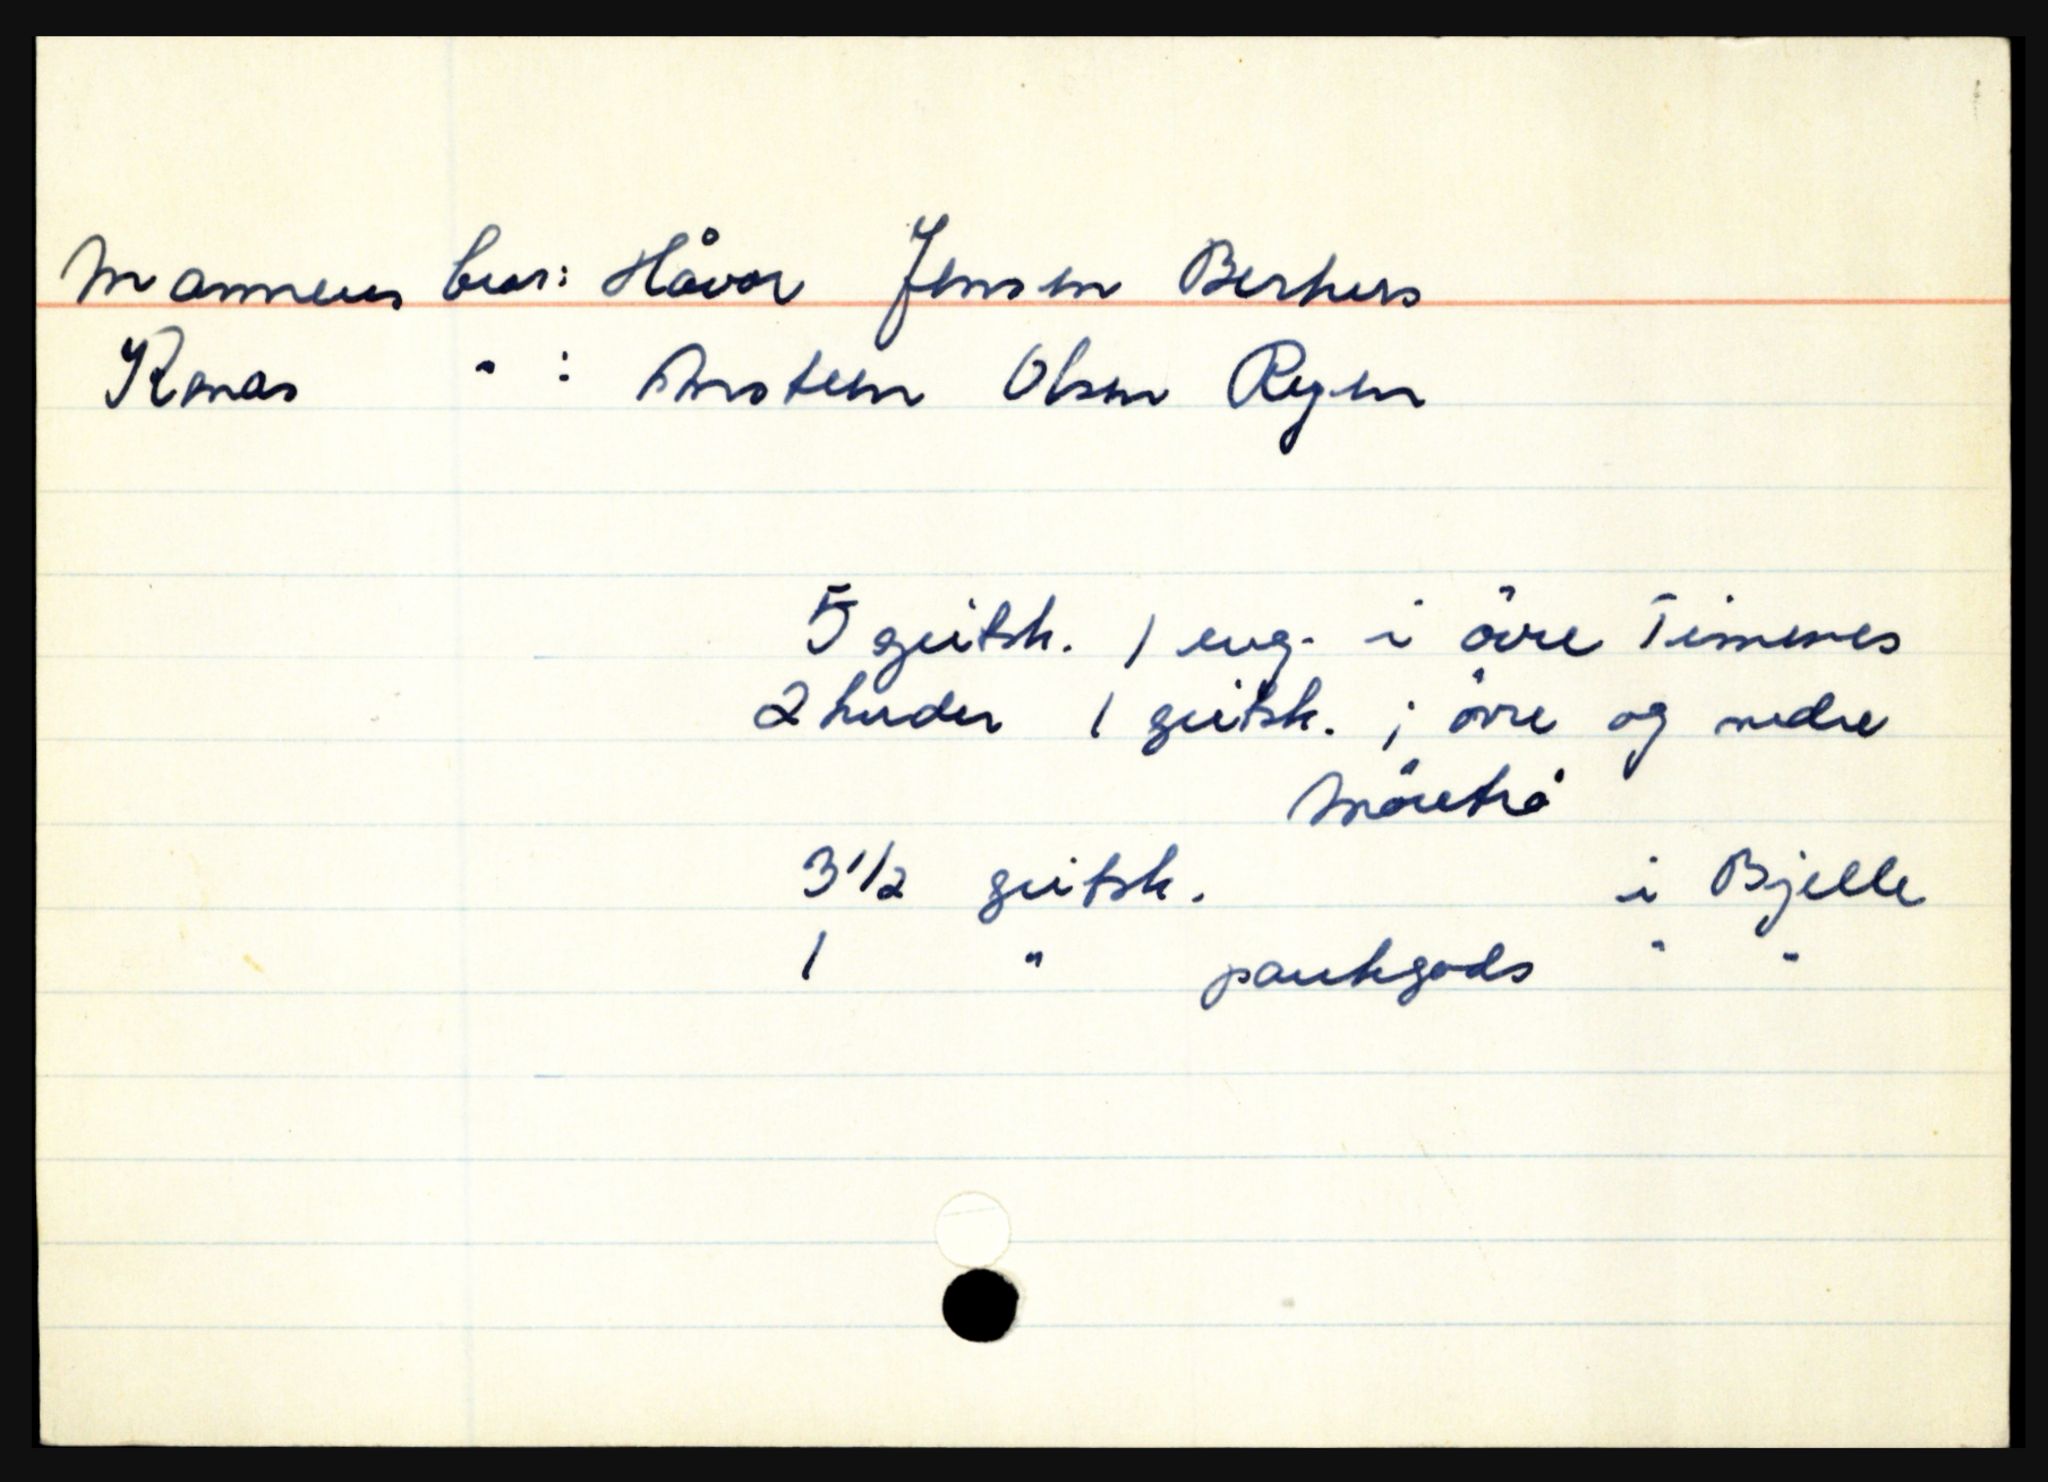 Mannens bror: Håvor Jensen Berhus
Konas " : Arnstein Olsen Rygen
5 geitsk. 1 eng. i övre Timenes
2 huder 1 geitsk. i övre og nedre
Möretrå
3 1/2 geitsk. i Bjelle
1 " pantegods " "